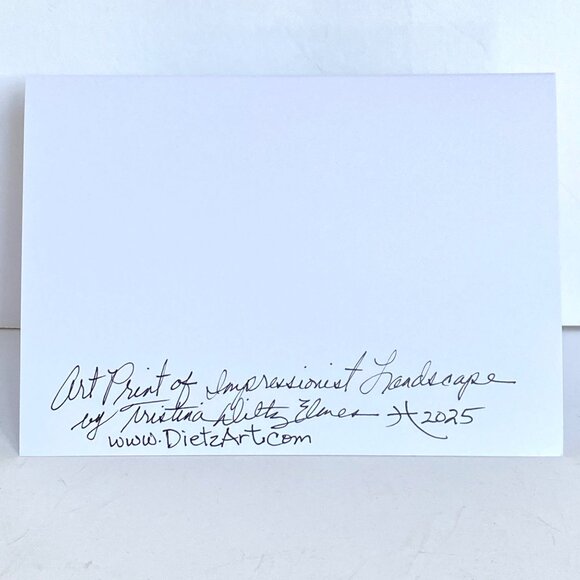 Art Print of Impressionist Landscape
by Tristina Dietz Elmes ♓ 2025
www.DietzArt.com